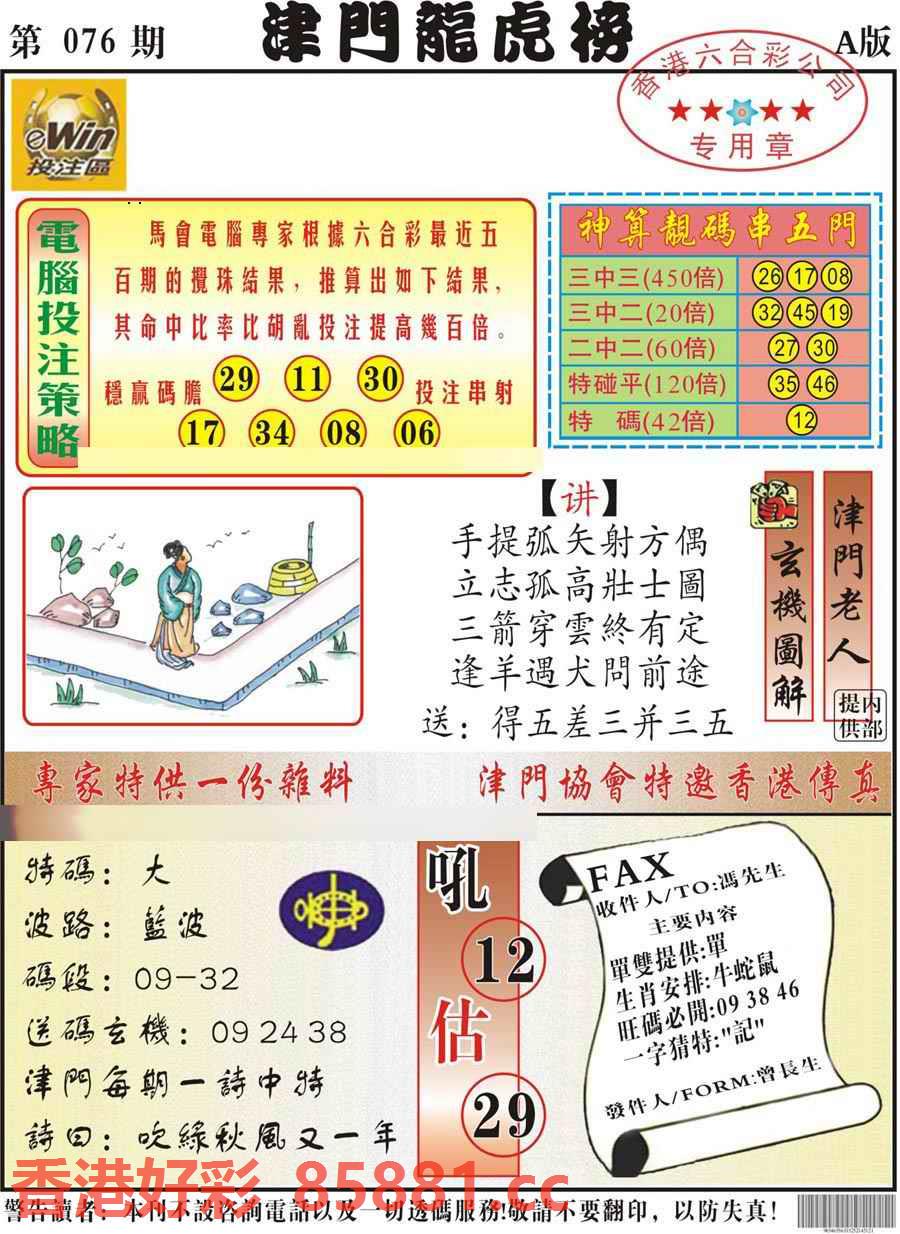 第 076 期
津門龍虎榜
A版
香港六合彩公司
专用章
eWin
投注區
電腦投注策略
馬會電腦專家根據六合彩最近五
百期的攪珠結果，推算出如下結果，
其命中比率比胡亂投注提高幾百倍。
穩贏碼膽 29 11 30 投注串射
17 34 08 06
神算靚碼串五門
三中三(450倍) 26 17 08
三中二(20倍) 32 45 19
二中二(60倍) 27 30
特碰平(120倍) 35 46
特 碼(42倍) 12
【讲】
手提弧矢射方偶
立志孤高壯士圖
三箭穿雲終有定
逢羊遇犬問前途
送：得五差三并三五
玄機圖解
津門老人
内部提供
專家特供一份雜料
津門協會特邀香港傳真
特碼：大
波路：藍波
碼段：09-32
送碼玄機：09 24 38
津門每期一詩中特
詩曰：吹綠秋風又一年
吼
12
估
29
FAX
收件人/TO:馮先生
主要内容
單雙提供:單
生肖安排:牛蛇鼠
旺碼必開:09 38 46
一字猜特:"記"
發件人/FORM:曾長生
香港好彩 85881.cc
警告讀者：本刊不設咨詢電話以及一切透碼服務!敬請不要翻印，以防失真!